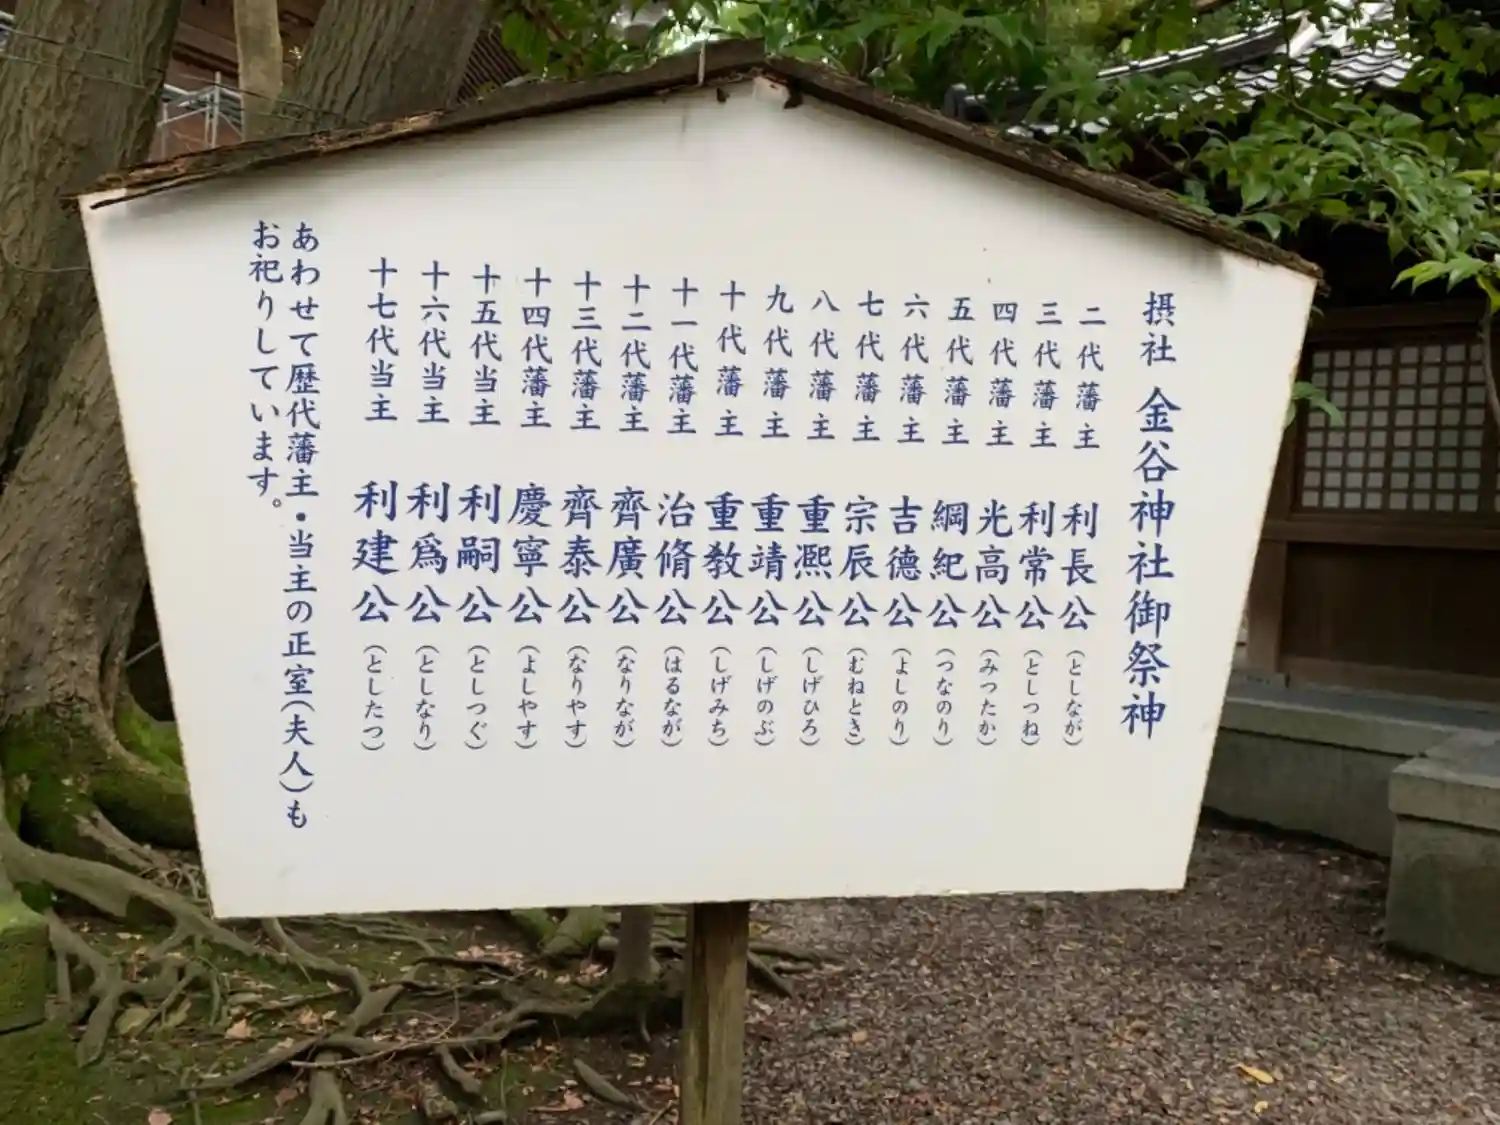 摂社 金谷神社御祭神
二代藩主 利長公(としなが)
三代藩主 利常公(としつね)
四代藩主 光高公(みつたか)
五代藩主 綱紀公(つなのり)
六代藩主 吉德公(よしのり)
七代藩主 宗辰公(むねとき)
八代藩主 重凞公(しげひろ)
九代藩主 重靖公(しげのぶ)
十代藩主 重敎公(しげみち)
十一代藩主 治脩公(はるなが)
十二代藩主 齊廣公(なりなが)
十三代藩主 齊泰公(なりやす)
十四代藩主 慶寧公(よしやす)
十五代当主 利嗣公(としつぐ)
十六代当主 利爲公(としなり)
十七代当主 利建公(としたつ)
あわせて歴代藩主・当主の正室(夫人)も
お祀りしています。